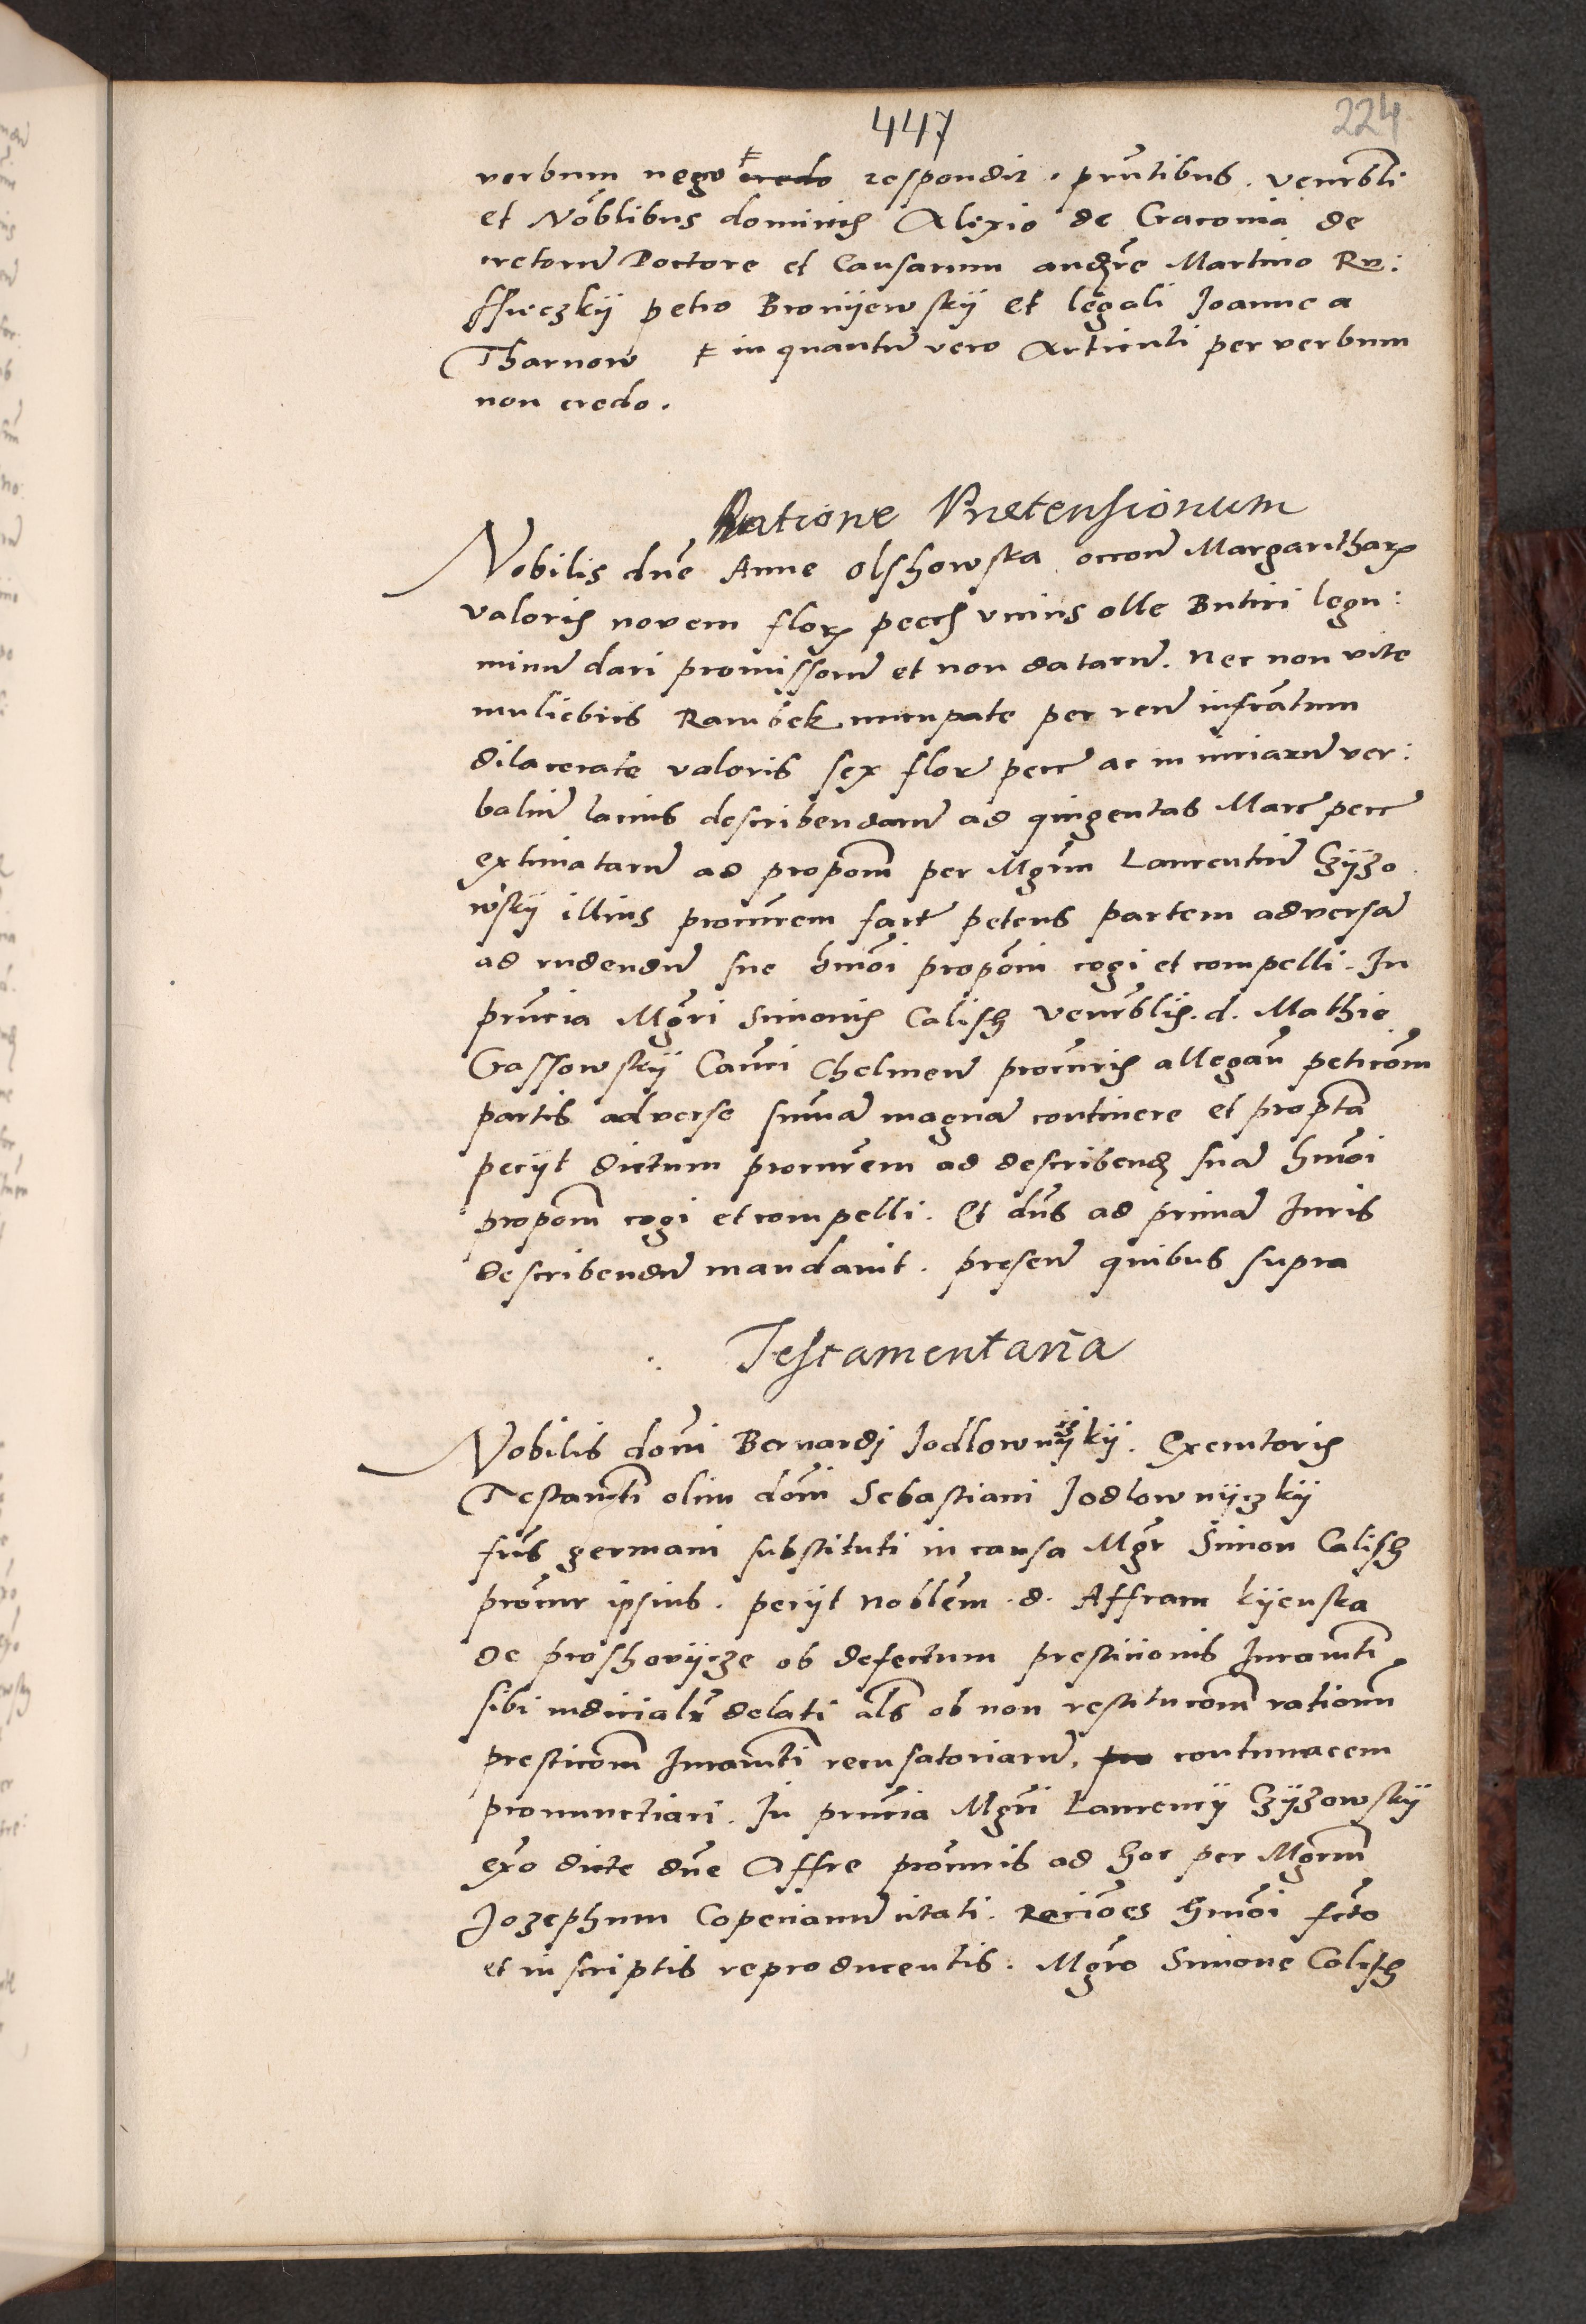 447
224
verbum nego credo respondit. prntibus. venrbli
et Noblibus dominis Alexio de Cracovia de
cretorum Doctore et Causarum auditre Martino Ru:
ssieczkij petro Bronijewskij et legali Joanne a
Tharnow ҂ in quantum vero Articuli per verbum
non credo.
Ratione Praetensionum
Nobilis dne Anne Olshowska occone Margaritharum
valoris novem flor pecch unius olle Butiri legu:
minum dari promissorum et non datarum. Nec non vite
muliebris Rambek nuncupate per reum infratum
dilacerate valoris sex flor pecc ac iniuriarum ver:
balium lacius describendarum ad quingentas Marc pecc
extimatarum ad propom per Mgrm Laurentium Czijzo
wskij illius procurem fact petens partem adversam
ad rndendum sue hmoi proponi cogi et compelli. In
prncia Mgri Simonis Calish venrblis. d. Mathie
Crassowskij Canci Chelmen procuris allegan peticom
partis adverse sumam magnam continere et propta
pecijt dictum procurem ad describend suam hmoi
propom cogi et compelli. Et dns ad primam Juris
describendum mandavit. presen quibus supra
Testamentaria
Nobilis domi Bernardj Jodlownijczkij. Executoris
Testamti olim domi Sebastiani Jodlownijczkij
fris germani substituti in causa Mgr Simon Calish
procur ipsius. pecijt noblem .d. Affram kijenska
de proshovijcze ob defectum presticionis Juramti
sibi iudicialr delati als ob non restitucom rationum
presticom Juramti recusatoriarum, pro contumacem
pronunctiari. In prncia Mgri Laurencij Czijzowskij
exo dicte dne Affre procuris ad hoc per Mgrm
Jozephum Copecianum citati. Raciones hmoi scto
et in scriptis reproducentis. Mgro Simone Calish